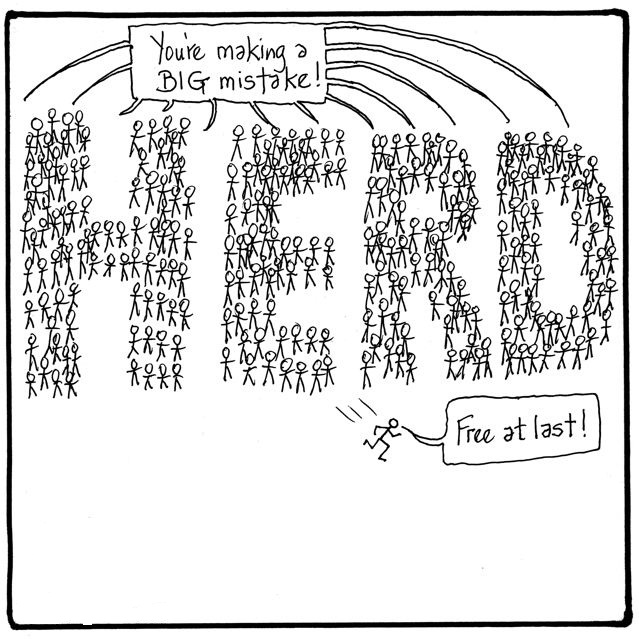 You're making a
BIG mistake!
HERD
Free at last!